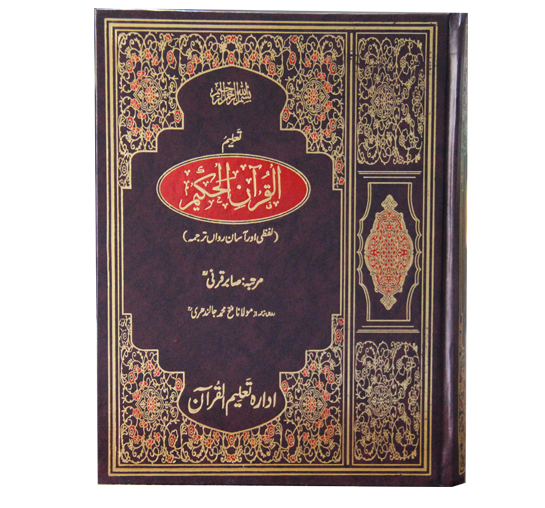 بسم الله الرحمن الرحيم
تعلیم
القرآن الحکیم
(لفظی اور آسان رواں ترجمہ)
مرتبہ: صابر قرنیؒ
رواں ترجمہ از مولانا فتح محمد جالندھریؒ
ادارہ تعلیم القرآن